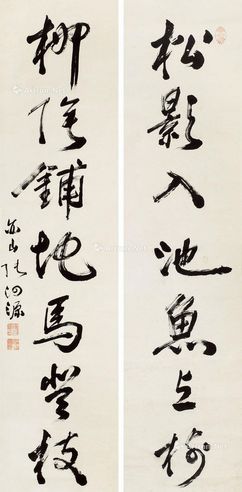 松影入池魚上樹
柳陰鋪地馬登枝
山張河源